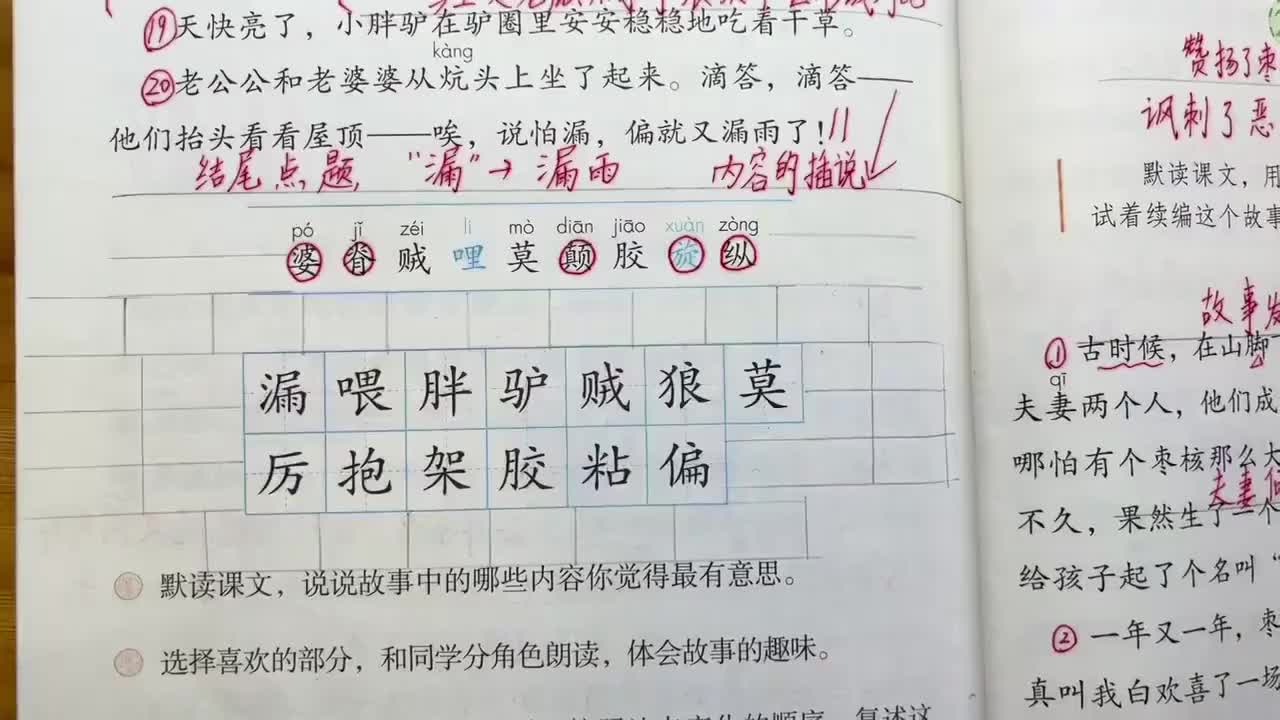 ⑲天快亮了，小胖驴在驴圈里安安稳稳地吃着干草。
kàng
⑳老公公和老婆婆从炕头上坐了起来。滴答，滴答——
他们抬头看看屋顶——唉，说怕漏，偏就又漏雨了！
结尾点题 “漏”→漏雨 内容的插说
pó jǐ zéi li mò diān jiāo xuàn zòng
婆 脊 贼 哩 莫 颠 胶 旋 纵
漏 喂 胖 驴 贼 狼 莫
厉 抱 架 胶 粘 偏
默读课文，说说故事中的哪些内容你觉得最有意思。
选择喜欢的部分，和同学分角色朗读，体会故事的趣味。
赞扬了枣
讽刺了恶
默读课文，用
试着续编这个故事
故事发
①古时候，在山脚
qī
夫妻两个人，他们成
哪怕有个枣核那么大
夫妻
不久，果然生了一个
给孩子起了个名叫“
②一年又一年，枣
真叫我白欢喜了一场